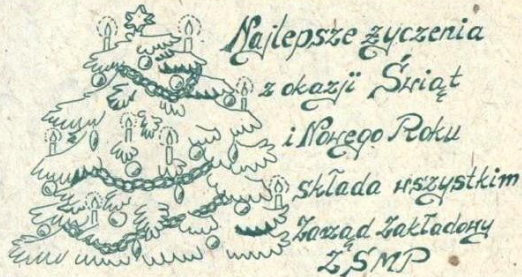 Najlepsze życzenia
z okazji Świąt
i Nowego Roku
składa wszystkim
Zarząd Zakładowy
ZSMP